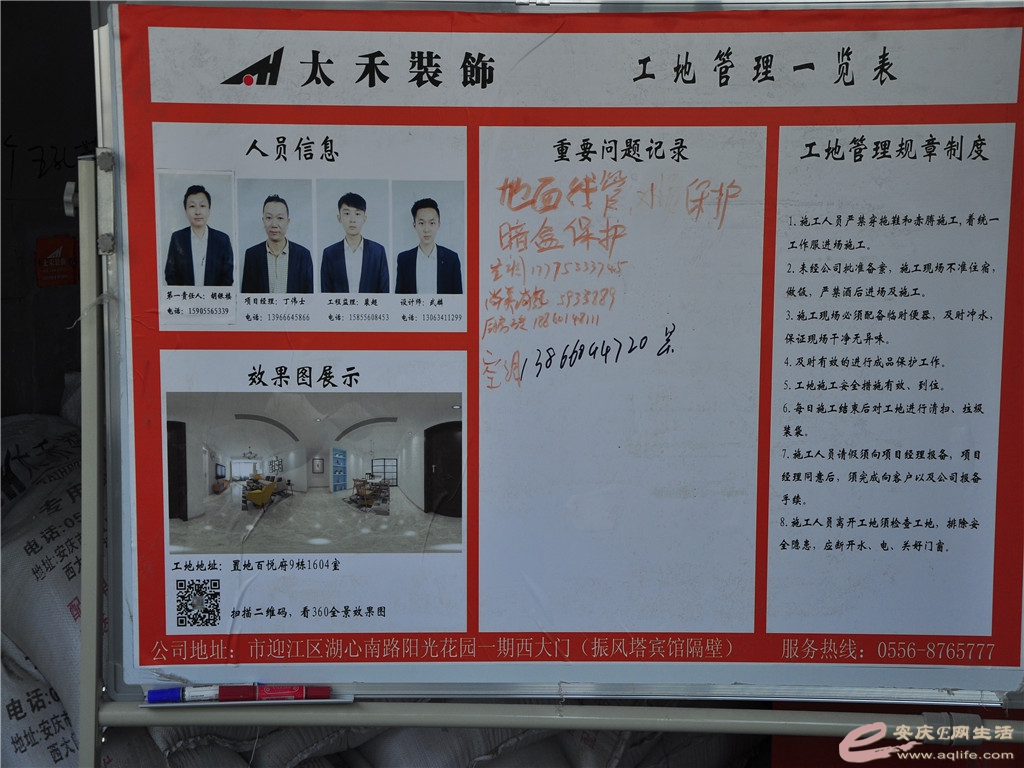 太禾装飾
工地管理一览表
人员信息
第一责任人：胡银榜
电话：15905565339
项目经理：丁伟士
电话：13966645866
工程监理：裴超
电话：15855608453
设计师：武麟
电话：13063411299
效果图展示
工地地址：置地百悦府9栋1604室
扫描二维码，看360全景效果图
重要问题记录
地面线管 水 保护
暗盒保护
17775333745
5933889
空调 13866844720
工地管理规章制度
1.施工人员严禁穿拖鞋和赤膊施工，着统一
工作服进场施工。
2.未经公司批准备案，施工现场不准住宿，
做饭，严禁酒后进场及施工。
3.施工现场必须配备临时便器，及时冲水，
保证现场干净无异味。
4.及时有效的进行成品保护工作。
5.工地施工安全措施有效、到位。
6.每日施工结束后对工地进行清扫、垃圾
装袋。
7.施工人员请假须向项目经理报备，项目
经理同意后，须完成向客户以及公司报备
手续。
8.施工人员离开工地须检查工地，排除安
全隐患，应断开水、电、关好门窗。
公司地址：市迎江区湖心南路阳光花园一期西大门（振风塔宾馆隔壁）
服务热线：0556-8765777
专用
电话:05
地址:安庆市
西大
电话:0
地址:安庆市
西大
安庆E网生活
www.aqlife.com